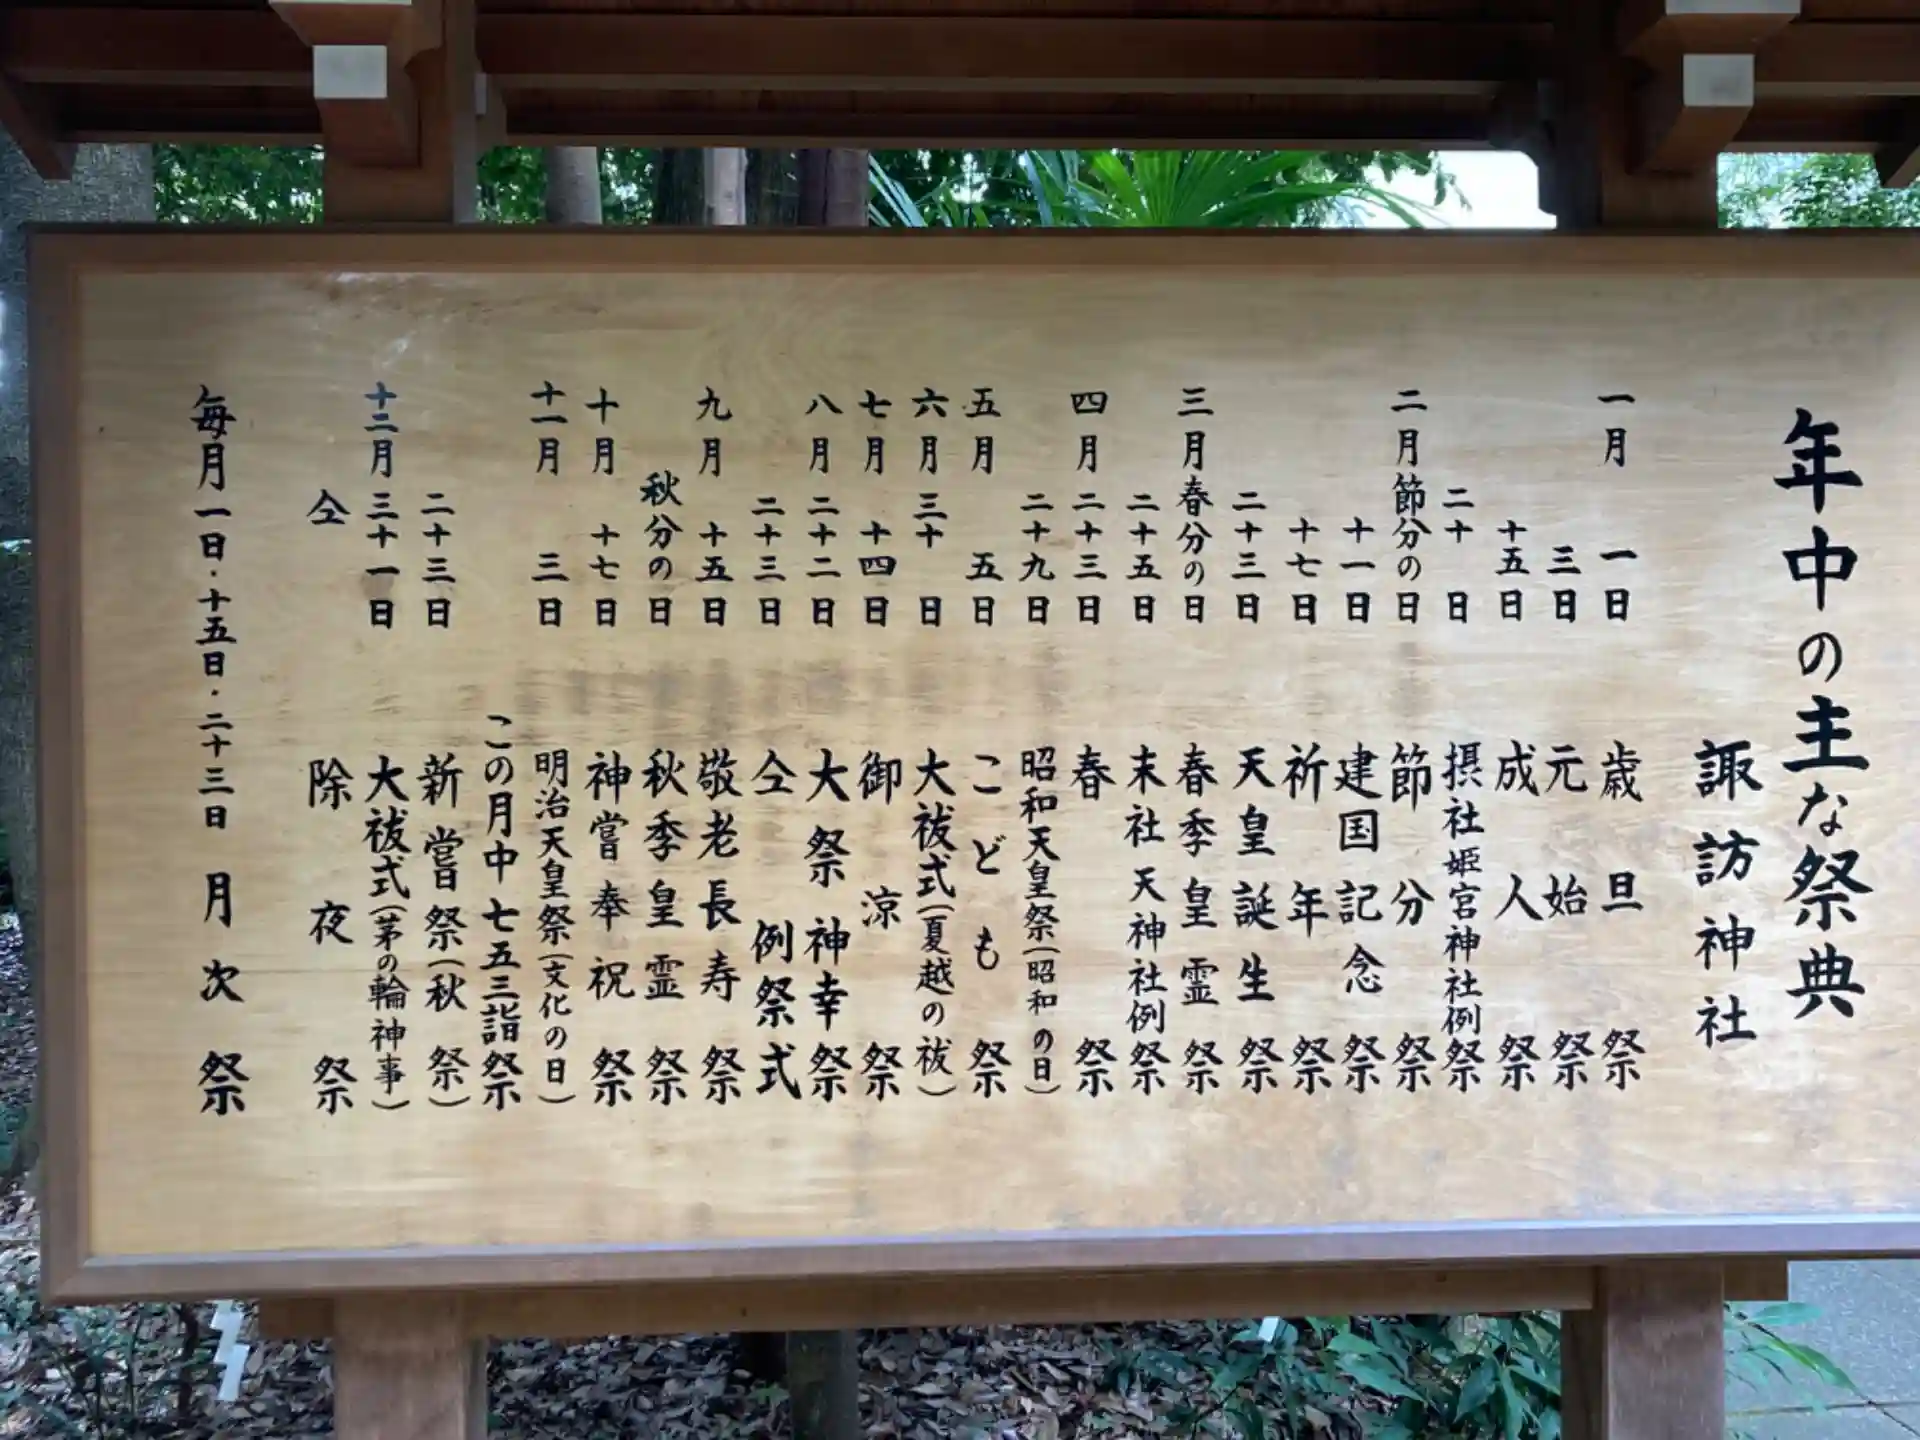 年中の主な祭典
諏訪神社
一月 一日 歳旦祭
三日 元始祭
十五日 成人祭
二十日 摂社姫宮神社例祭
二月節分の日 節分祭
十一日 建国記念祭
十七日 祈年祭
二十三日 天皇誕生祭
三月春分の日 春季皇霊祭
二十五日 末社天神社例祭
四月二十三日 春祭
二十九日 昭和天皇祭(昭和の日)
五月 五日 こども祭
六月三十日 大祓式(夏越の祓)
七月十四日 御涼祭
八月二十二日 大祭神幸祭
二十三日 仝例祭式
九月十五日 敬老長寿祭
秋分の日 秋季皇霊祭
十月十七日 神嘗奉祝祭
十一月 三日 明治天皇祭(文化の日)
この月中七五三詣祭
二十三日 新嘗祭(秋祭)
十二月三十一日 大祓式(茅の輪神事)
仝 除夜祭
毎月一日・十五日・二十三日 月次祭